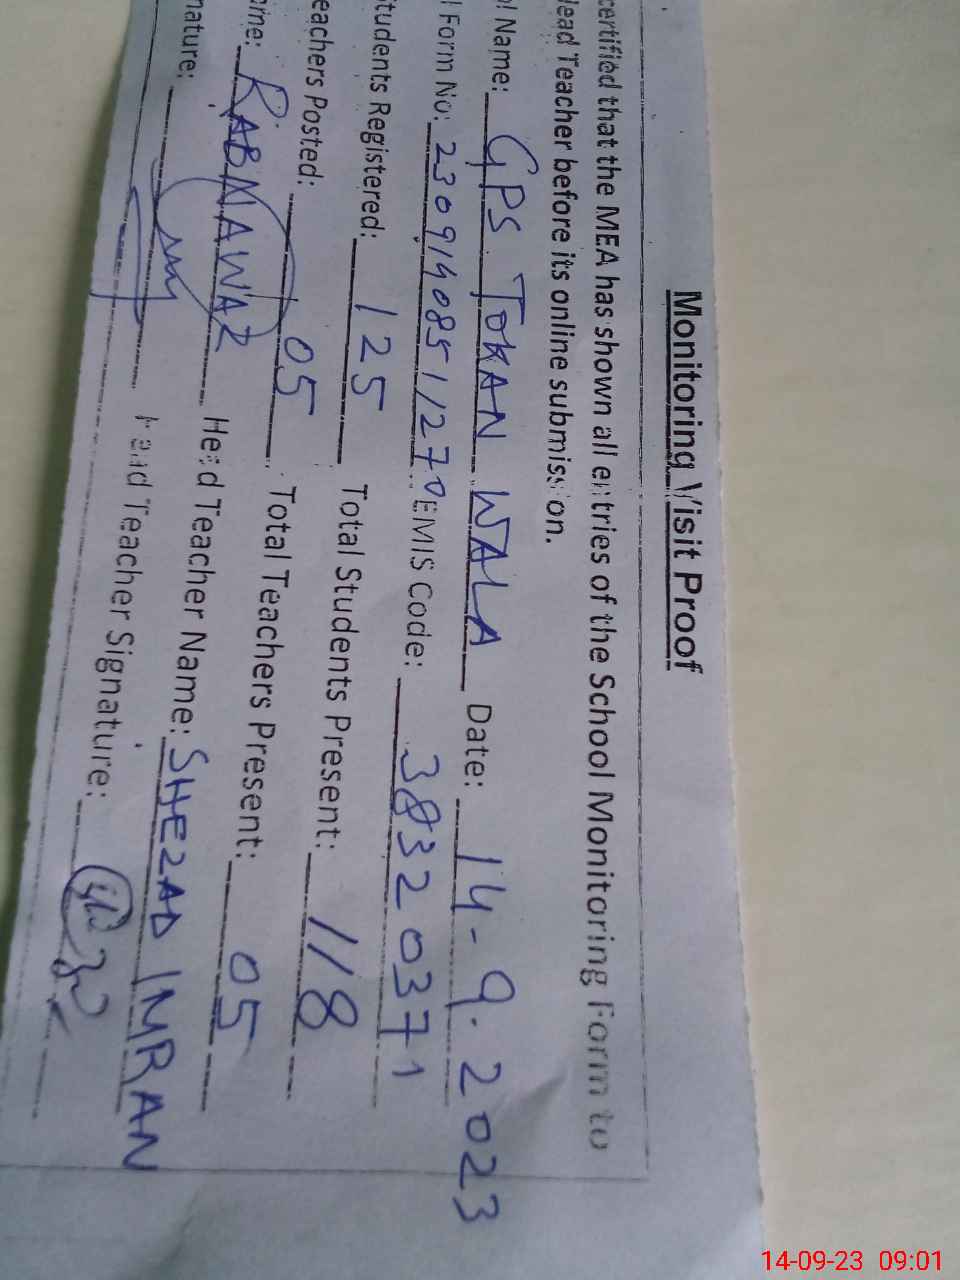 Monitoring Visit Proof
certified that the MEA has shown all entries of the School Monitoring Form to
Head Teacher before its online submission.
ol Name: GPS TOKAN WALA Date: 14-9.2023
l Form No: 23091408511270 EMIS Code: 38320371
tudents Registered: 125 Total Students Present: 118
eachers Posted: 05 Total Teachers Present: 05
ame: RABNAWAZ Head Teacher Name: SHEZAD IMRAN
nature: Head Teacher Signature:
14-09-23 09:01